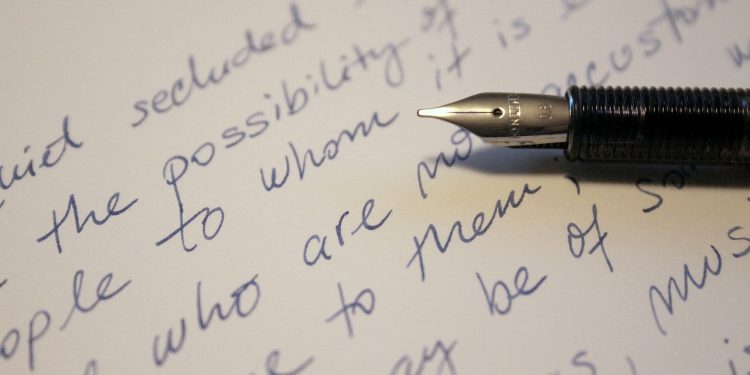 secluded
the possibility of
ople to whom it is
who are no ccustom
to them;
ay be of so
s, mus